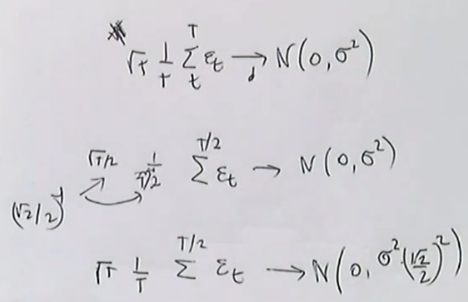 * √T 1/T Σ_t^T ε_t →_d N(0, σ²)
√T/2 1/T/2 Σ^{T/2} ε_t → N(0, σ²)
(√2/2)
√T 1/T Σ^{T/2} ε_t → N(0, σ²(√2/2)²)